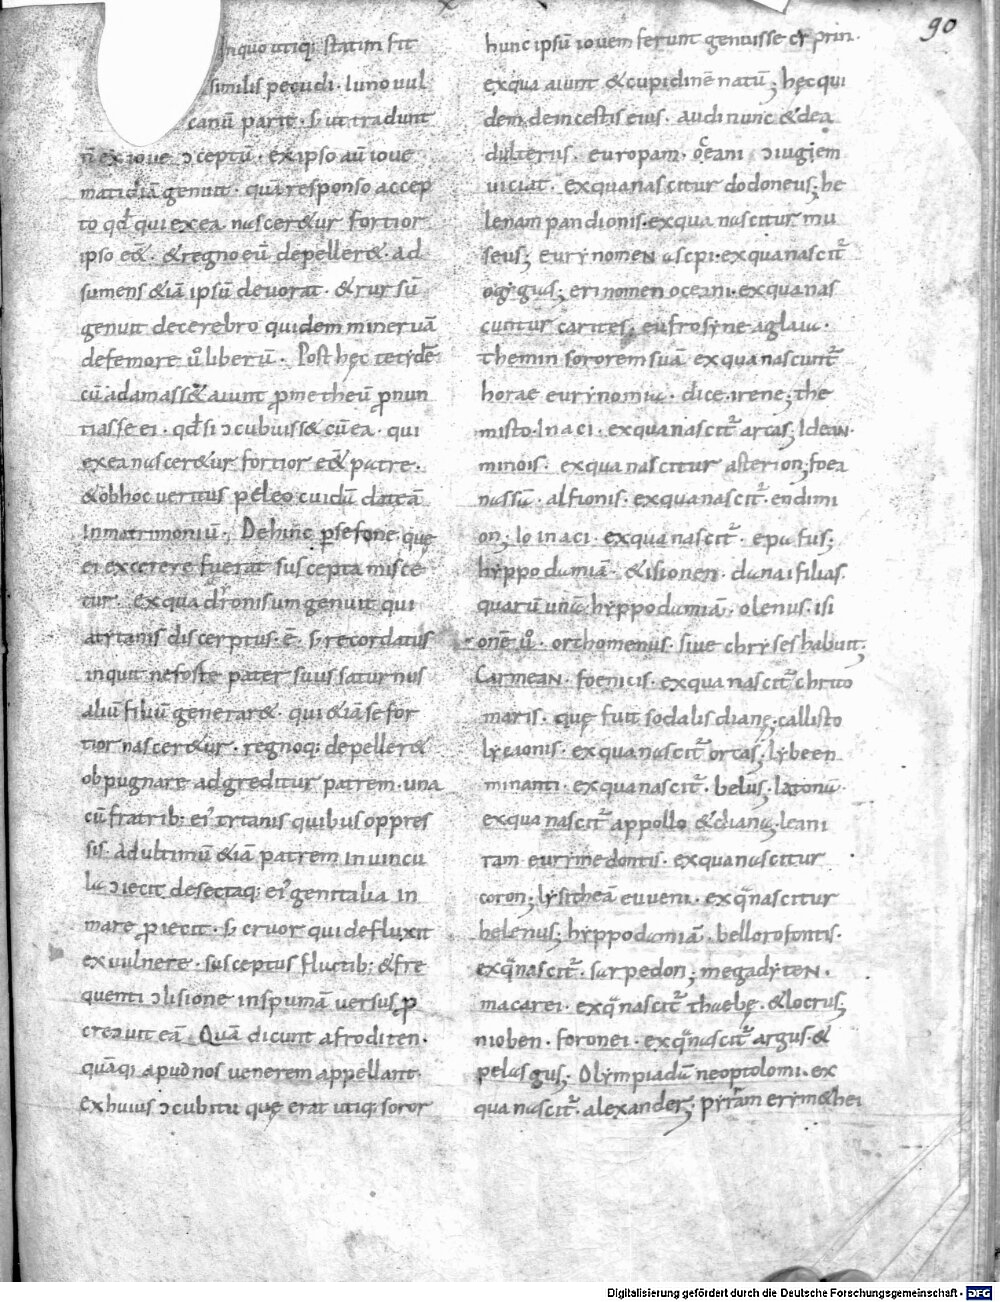 90
Inquo utiq; statim fit
similis pecudi · Iuno uul
canū parit · ꝉ ut tradunt
n̄ ex ioue ɔceptū · ex ipso aū ioue
matidiā genuit · quā responso accep
to qd̄ qui ex ea nasceretur fortior
ipso eēt · & regno eū depelleret · ad
sumens & iā ipsū deuorat · & rursū
genuit decerebro quidem mineruā
defemore ů liberū · Post hęc tetydē
cū adamasset aiunt ꝓmetheū ꝓnun
tiasse ei · qd̄ si ɔcubuisset cū ea · qui
ex ea nasceretur fortior eēt patre ·
& obhoc ueritus peleo cuidā dat eā
In matrimoniū ; Dehinc psefone quę
ei ex cerere fuerat suscepta misce
tur · ex qua dionisum genuit qui
atytanis discerptus · ē · ꝉ recordatus
inquit nefoste pater suus saturnus
aliū filiū generaret · qui & iā se for
tior nasceretur · regnoq; depelleret
obpugnare adgreditur patrem · una
cū fratrib: ei' tytanis quibus oppres
sis · ad ultimū & iā patrem in uincu
la ɔiecit desectaq; ei' genitalia in
mare ꝓiecit · ꝉ cruor qui defluxit
ex uulnere · susceptus fluctib: & fre
quenti ɔlisione inspumā uersus ꝓ
creauit eā · Quā dicunt afroditen ·
quāq; apud nos uenerem appellant ·
ex huius ɔcubitu quę erat utiq; soror
hunc ipsū iouem ferunt genuisse cyprin ·
ex qua aiunt & cupidinē natū ; hęc qui
dem de incestis eius · audi nunc & de a
dulteriis · europam · oceani ɔiugiem
uiciat · ex qua nascitur dodoneus ; he
lenam pandionis · ex qua nascitur mu
seus ; eurynomen ascpi · ex qua nascit̃
ogygius ; erinomen oceani · ex qua nas
cuntur carites ; eufrosyne aglaia ·
themin sororem suā ex qua nascunt̃
horae eurynomia · dice · irene ; the
misto · Inaci · ex qua nascit̃ arcas ; Idean ·
minois · ex qua nascitur asterion ; foea
nassū · alfionis · ex qua nascit̃ · endimi
on ; Io inaci · ex qua nascit̃ · epafus ;
hyppodamiā · & isionen · danai filias
quarū unā hyppodamiā · olenus · isi
onē ů · orthomenus · siue chryses habuit ;
Carmean · foenicis · ex qua nascit̃ chrito
maris · quę fuit sodalis dianę ; callisto
lycaonis · ex qua nascit̃ orcas ; lybeen
minanti · ex qua nascit̃ · belus ; latonā ·
ex qua nascit̃ appollo & diana ; leani
ram eurymedontis · ex qua nascitur
coron ; lysitheā euueni · ex q̄ nascitur
helenus ; hyppodamiā · bellorofontis ·
ex q̄ nascit̃ · sarpedon ; megadyten ·
macarei · ex q̄ nascit̃ thaebę · & locrus ;
nioben · foronei · ex q̄ nascit̃ argus · &
pelasgus ; Olympiadā neoptolomi · ex
qua nascit̃ · alexander ; pyrram erymethei
Digitalisierung gefördert durch die Deutsche Forschungsgemeinschaft - DFG